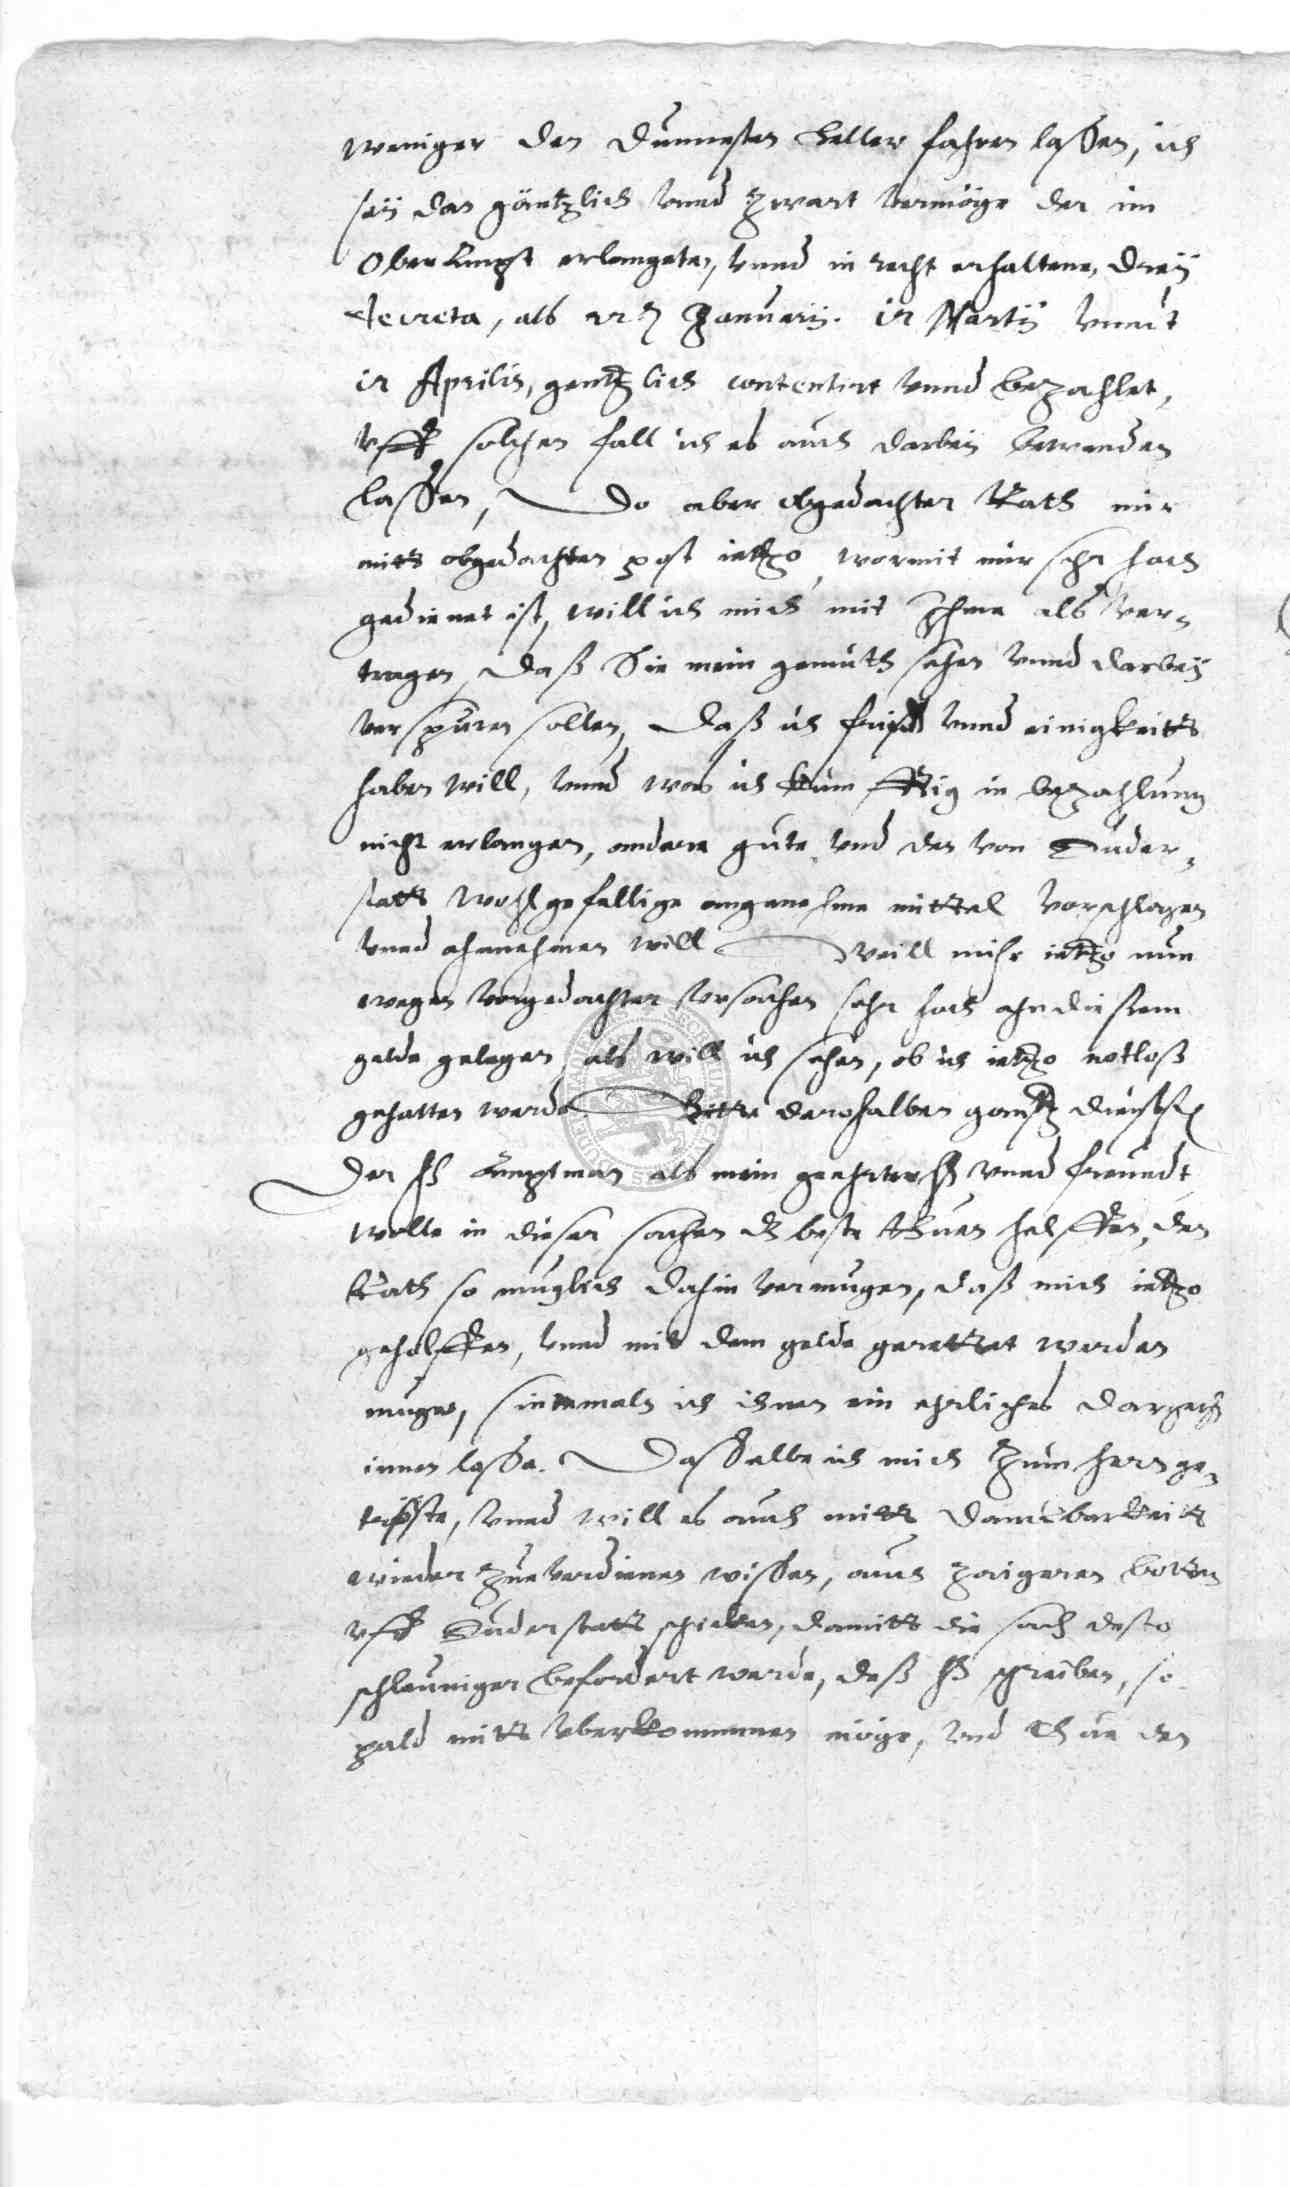 weniger den dunnesten heller fahren lassen, ich
seÿ dan gäntzlich vnnd zwart vermöge der im
Ober Ampt erlangeten, vnnd in recht erhaltene, dreÿ
decreta, als Januarÿ. Martÿ vnnd
Aprilis, gentzlich contentirt vnnd bezahlet,
vff solchen fall ich es auch darbeÿ bewenden
lassen, Do aber obgedachter Rath mir
mitt obgedachten post ietzo, wormit mir sehr hoch
gedienet ist, will ich mich mit Ihme als ver-
tragen, daß Sie mein gemuth sehen vnnd darbeÿ
verspüren sollen, daß ich vnnd einigkeitt
haben will, vnnd was ich kumfftig in bezahlung
nicht erlangen, andere gute vnd den von Duder-
statt wohlgefellige angenehme mittel vorschlagen
vnnd ahnnehmen will Weill mihr ietzo nun
wegen vorgedachter vrsachen sehr hoch ahn diessem
gelde gelegen als will ich sehen, ob ich ietzo notloß
gehalten werde. Bitte derohalben gantz dienstl.
Der H Amptman als mein geehrter H vnnd freundt
wolle in dieser sachen dz beste thuen helffen, den
Rath so muglich dahin vermugen, daß mich ietzo
geholffen, vnnd mit dem gelde gerettet werden
muge, sintemaln ich ihnen ein ehrliches dargegen
innen lasse. Dasselbe ich mich zum hern ge-
tröste, vnnd will es auch mitt danckbarkeitt
wieder zue verdienen wissen, auch zeigeren botten
vff Duderstatt schicken, damitt die sach desto
schleuniger befordert werde, deß H schreiben, so
pald mitt vberkommen möge, vnd thue den